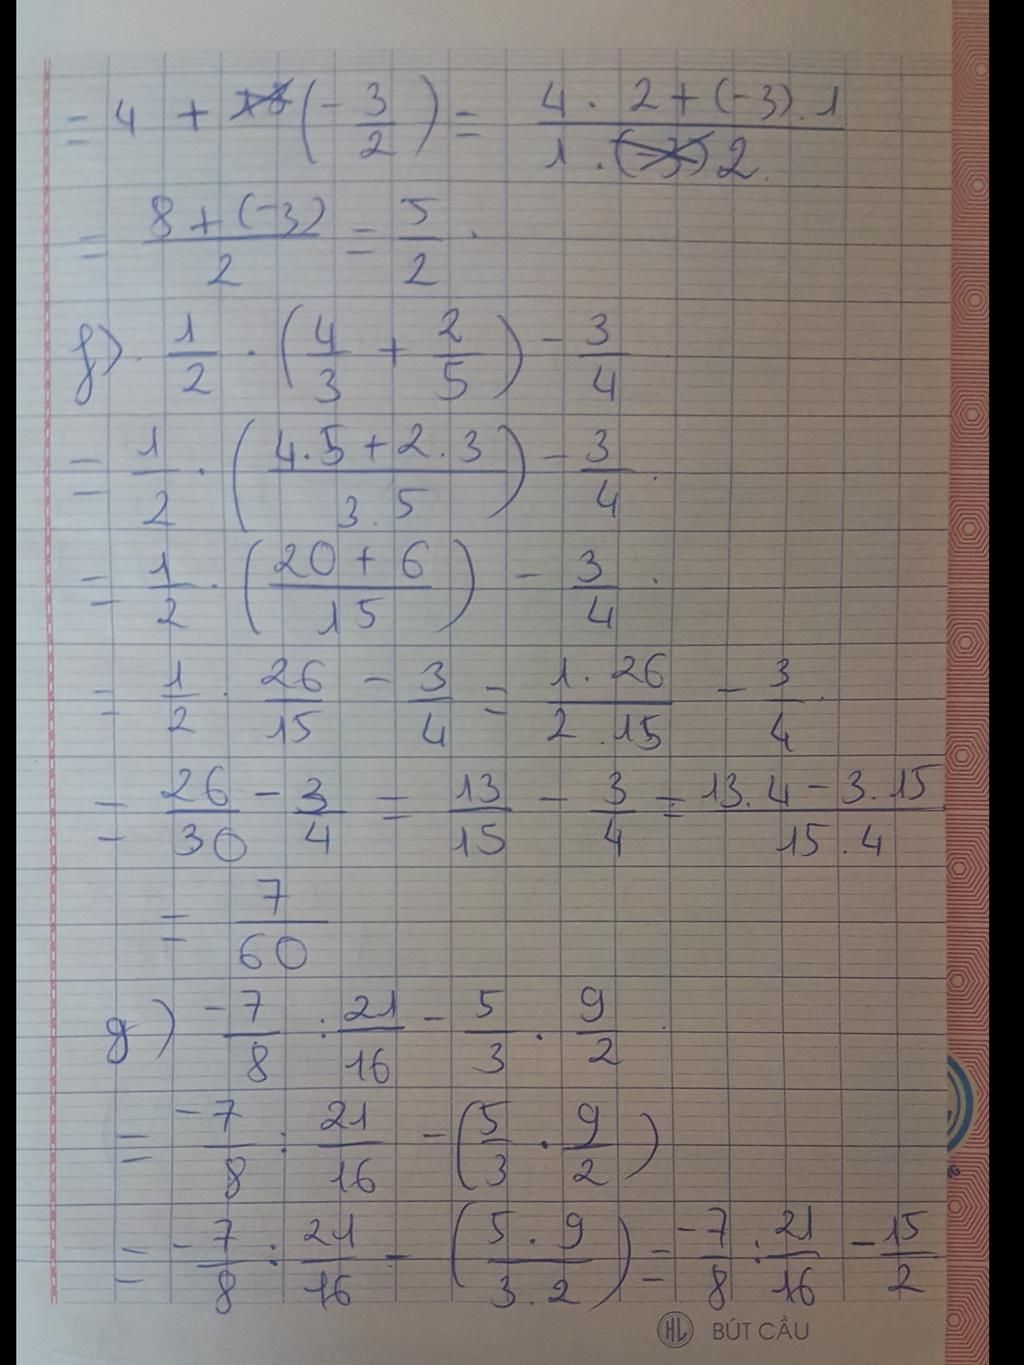 = 4 + (-3/2) = (4 . 2 + (-3) . 1)/(1 . 2)
= (8 + (-3))/2 = 5/2 .
f) 1/2 . (4/3 + 2/5) - 3/4
= 1/2 . ((4.5 + 2.3)/(3.5)) - 3/4
= 1/2 . ((20 + 6)/15) - 3/4
= 1/2 . 26/15 - 3/4 = (1 . 26)/(2 . 15) - 3/4
= 26/30 - 3/4 = 13/15 - 3/4 = (13.4 - 3.15)/(15.4)
= 7/60
g) -7/8 : 21/16 - 5/3 . 9/2
= -7/8 : 21/16 - (5/3 . 9/2)
= -7/8 : 21/16 - ((5 . 9)/(3 . 2)) = -7/8 : 21/16 - 15/2
HL BÚT CẦU